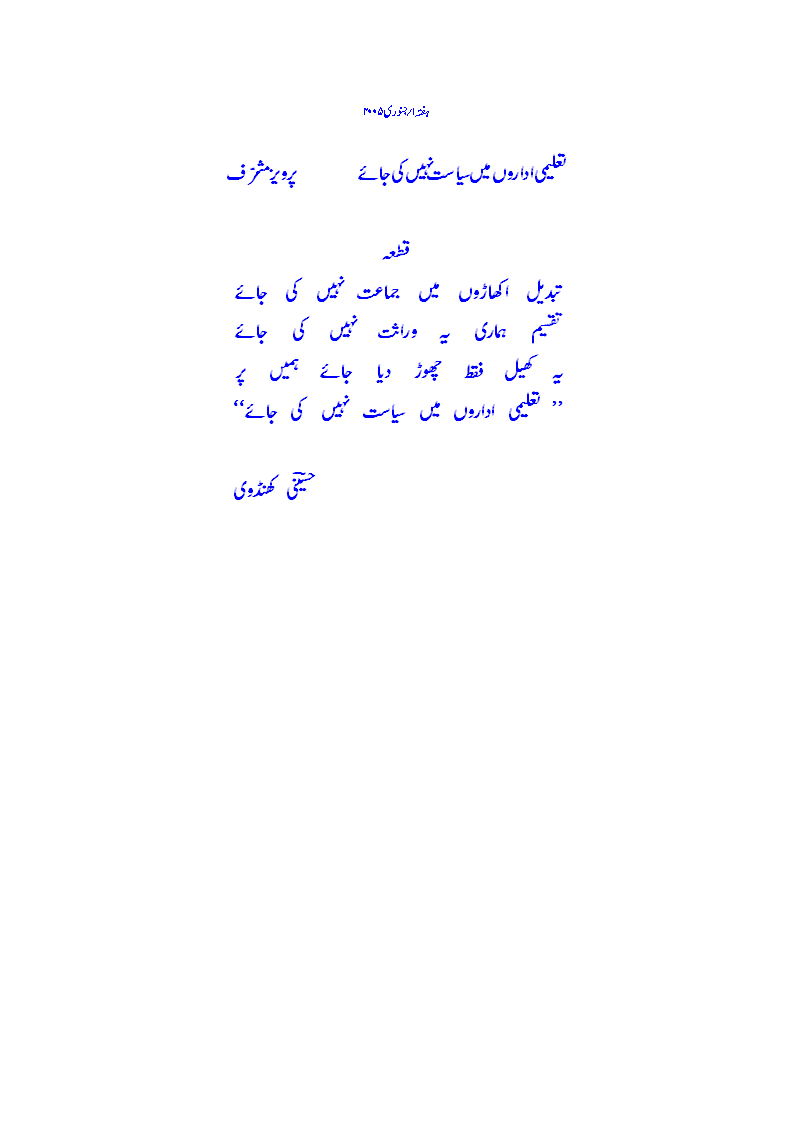 ہفتہ ۱/جنوری ۲۰۰۵
تعلیمی اداروں میں سیاست نہیں کی جائے پرویز مشرّف
قطعہ
تبدیل اکھاڑوں میں جماعت نہیں کی جائے
تقسیم ہماری یہ وراثت نہیں کی جائے
یہ کھیل فقط چھوڑ دیا جائے ہمیں پر
’’ تعلیمی اداروں میں سیاست نہیں کی جائے‘‘
حسینیؔ کھنڈوی